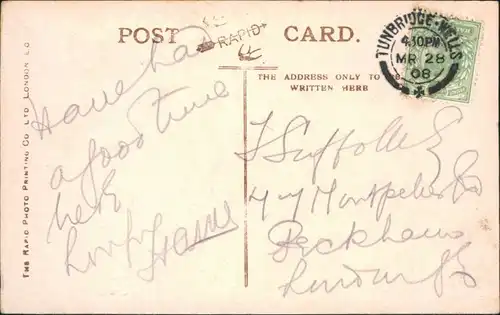 POST CARD.
RAPID
TUNBRIDGE-WELLS
4.30PM
MR 28
08
THE ADDRESS ONLY TO BE
WRITTEN HERE
THE RAPID PHOTO PRINTING CO LTD LONDON E.C.
Have had
a good time
here
Love
Peckham
London